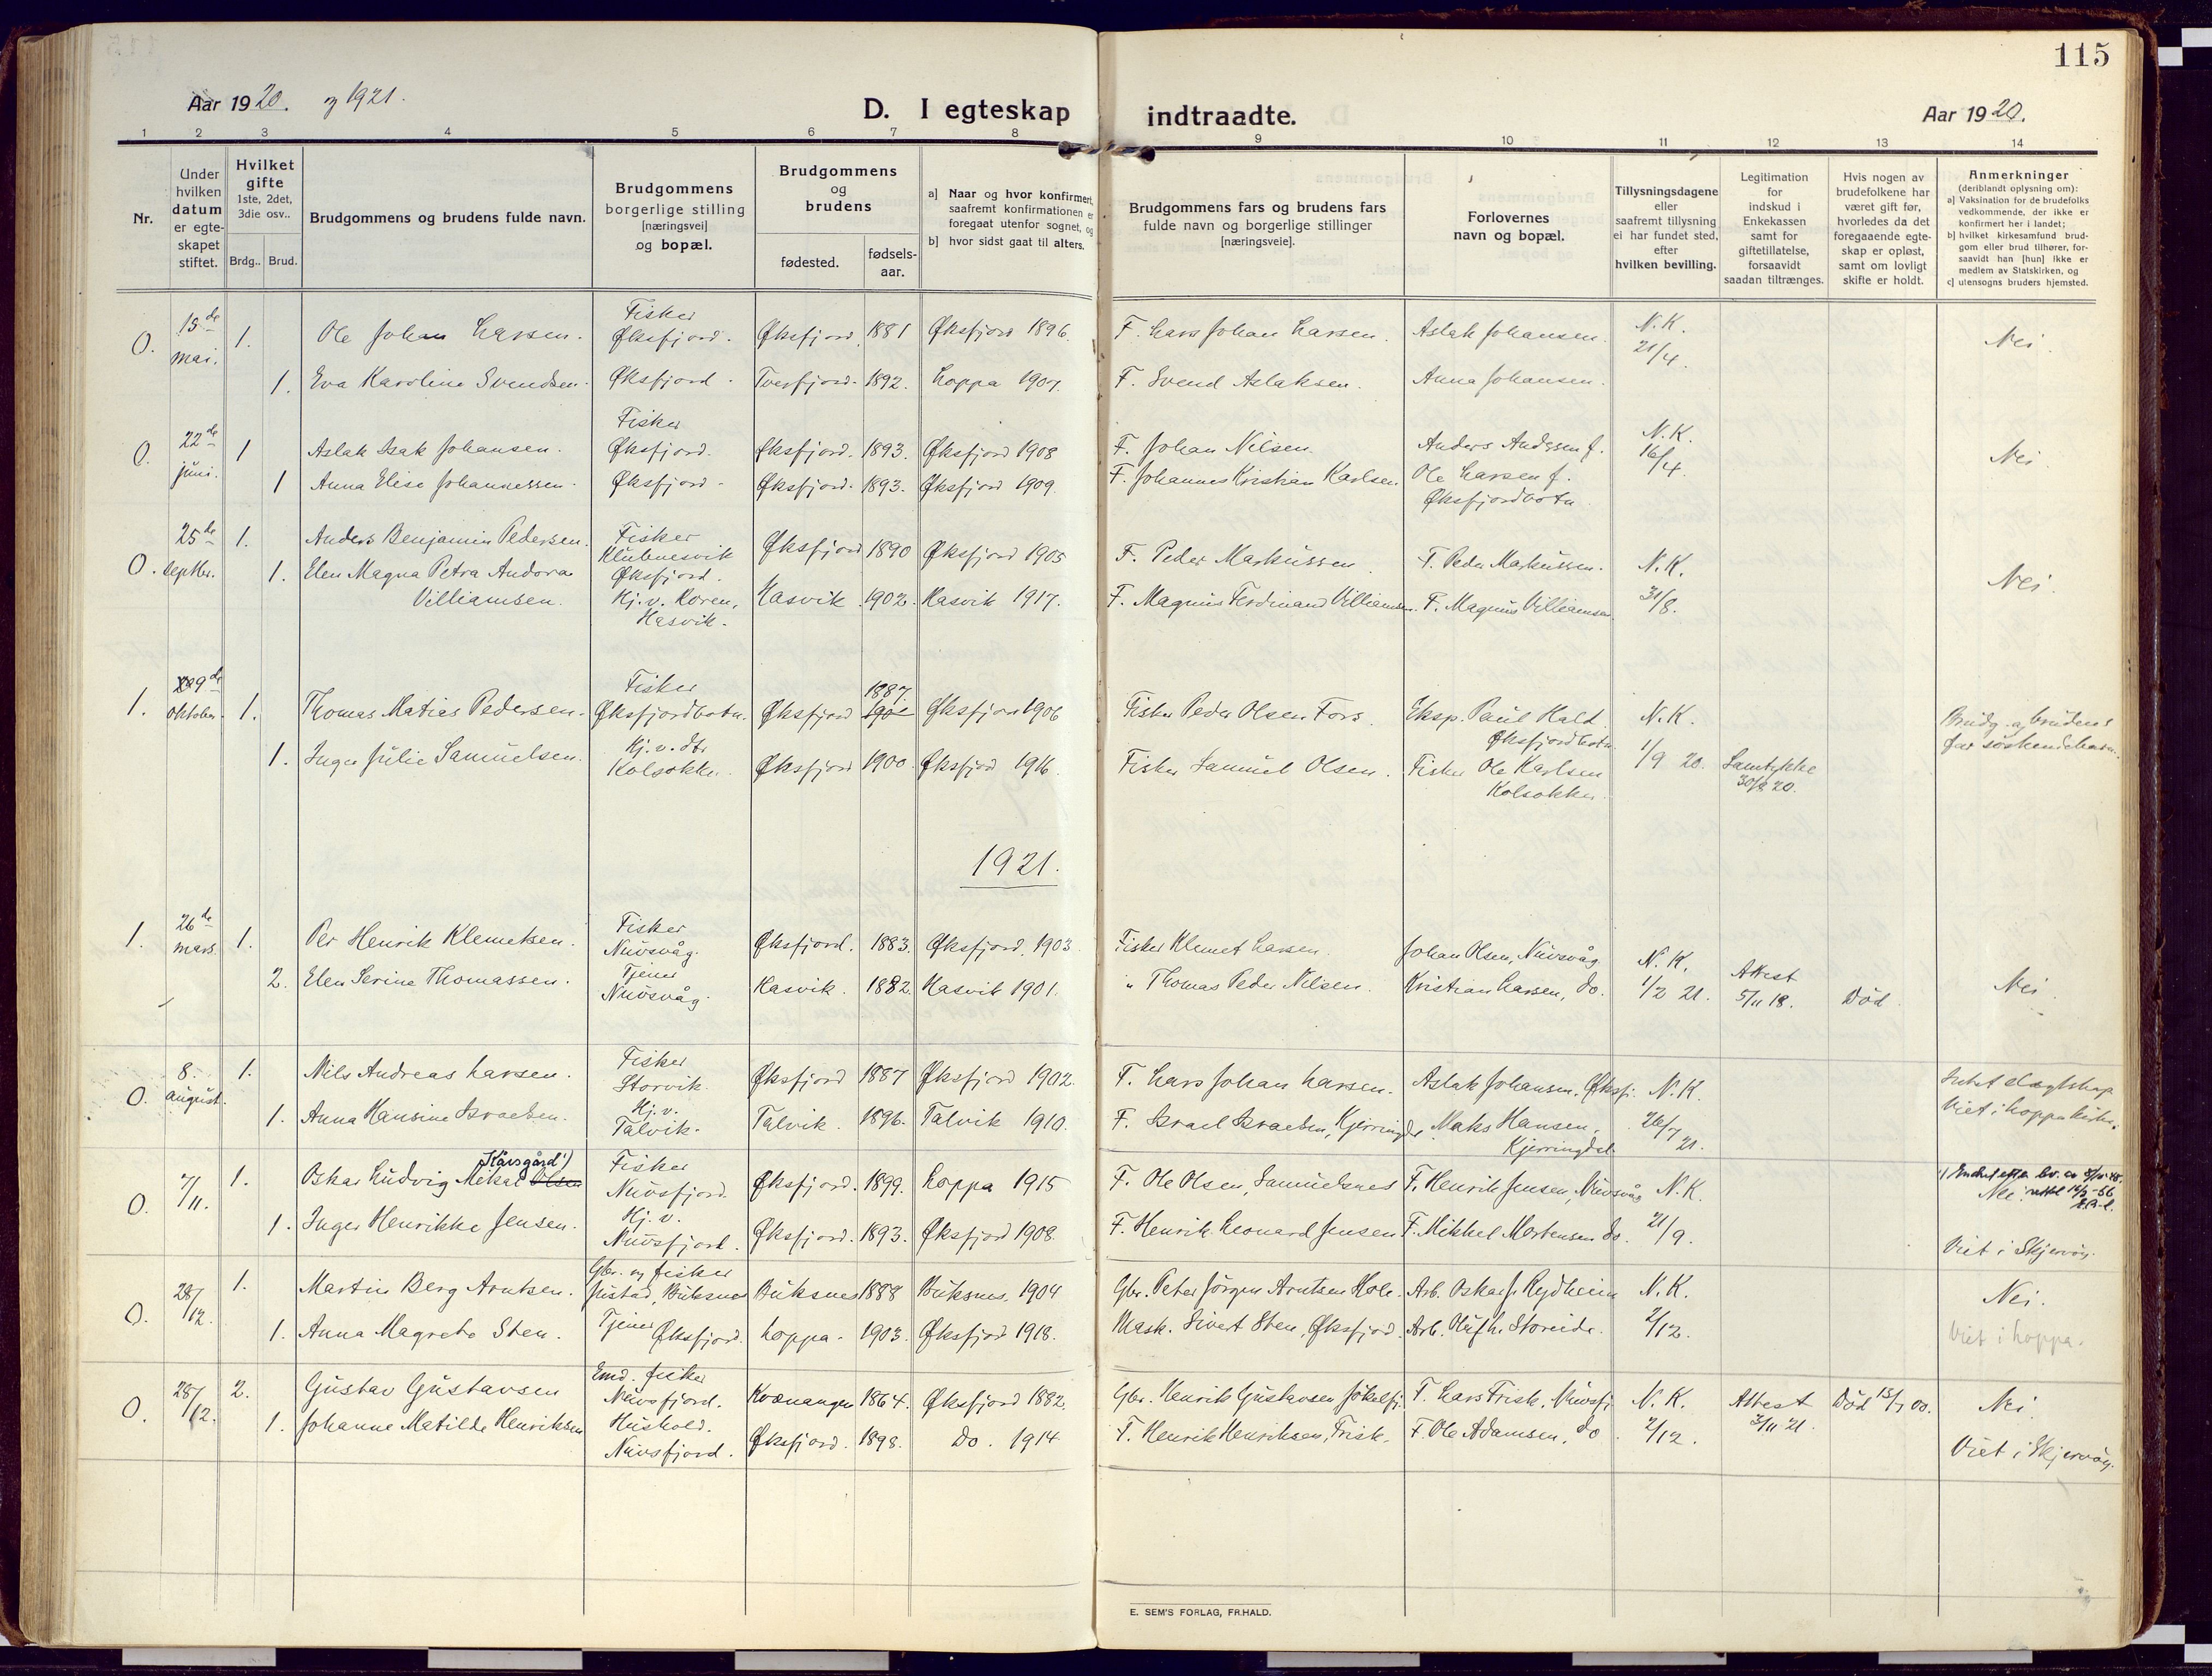 115
Aar 1920. og 1921.
D. I egteskap indtraadte.
Aar 1920.
1 2 3 4 5 6 7 8 9 10 11 12 13 14
Nr.
Under hvilken datum er egteskapet stiftet.
Hvilket gifte 1ste, 2det, 3die osv..
Brdg.. Brud.
Brudgommens og brudens fulde navn.
Brudgommens borgerlige stilling [næringsvei] og bopæl.
Brudgommens og brudens
fødested.
fødsels-aar.
a] Naar og hvor konfirmert, saafremt konfirmationen er foregaat utenfor sognet, og
b] hvor sidst gaat til alters.
Brudgommens fars og brudens fars fulde navn og borgerlige stillinger [næringsveie].
Forlovernes navn og bopæl.
Tillysningsdagene eller saafremt tillysning ei har fundet sted, efter hvilken bevilling.
Legitimation for indskud i Enkekassen samt for giftetillatelse, forsaavidt saadan tiltrænges.
Hvis nogen av brudefolkene har været gift før, hvorledes da det foregaaende egteskap er opløst, samt om lovligt skifte er holdt.
Anmerkninger (deriblandt oplysning om):
a] Vaksination for de brudefolks vedkommende, der ikke er konfirmert her i landet;
b] hvilket kirkesamfund brudgom eller brud tilhører, forsaavidt han [hun] ikke er medlem av Statskirken, og
c] utensogns bruders hjemsted.
0. 15de mai. 1. Ole Johan Larsen. Fisker Øksfjord. Øksfjord 1881 Øksfjord 1896. F. Lars Johan Larsen. Aslak Johansen. N.K. 21/4. Nei.
1. Eva Karoline Svendsen. Øksfjord. Tverfjord. 1892. Loppa 1907. F. Svend Aslaksen. Anna Johansen.
0. 22de juni. 1 Aslak Isak Johansen. Fisker Øksfjord. Øksfjord. 1893. Øksfjord 1908 F. Johan Nilsen. Anders Andersen f. N.K. 16/4. Nei
1 Anna Elise Johannessen. Øksfjord. Øksfjord. 1893. Øksfjord 1909. F. Johannes Kristian Karlsen. Ole Larsen f. Øksfjordbotn
0. 25de septbr. 1. Anders Benjamin Pedersen. Fisker Klubnesvik Øksfjord. Øksfjord 1890 Øksfjord 1905 F. Peder Markussen F. Peder Markussen. N.K. 31/8. Nei.
1. Elen Magna Petra Andora Villiamsen. Hj. v. Koren, Hasvik. Hasvik 1902. Hasvik 1917. F. Magnus Ferdinand Villiamsen. F. Magnus Villiamsen
1. 9de oktober. 1. Thomas Matias Pedersen. Fisker Øksfjordbotn. Øksfjord 1887. Øksfjord 1906 Fisker Peder Olsen Fors. Eksp. Paul Hald Øksfjordbotn N.K. 1/9 20. Brudg. og brudens far søskendebarn.
1. Inger Julie Samuelsen. Hj. v. dtr Kolsokker. Øksfjord 1900. Øksfjord 1916. Fisker Samuel Olsen. Fisker Ole Karlsen Kolsokker. Samtykke 30/8 20.
1921.
1. 26de mars. 1. Per Henrik Klemetsen. Fisker Nuvsvåg. Øksfjord. 1883. Øksfjord. 1903. Fisker Klemet Larsen. Johan Olsen, Nuvsvåg N.K. 1/2 21.
2. Elen Serine Thomassen. Tjener Nuvsvåg. Hasvik. 1882. Hasvik 1901. " Thomas Peder Nilsen. Kristian Larsen, do. Attest 5/11 18. Død Nei.
0. 8. august. 1. Nils Andreas Larsen. Fisker Storvik. Øksfjord 1887 Øksfjord 1902. F. Lars Johan Larsen. Aslak Johansen. Øksfj. N.K. 26/7 21. Intet slægtskap Viet i Loppa kirke.
1. Anna Hansine Israelsen. Hj. v. Talvik. Talvik. 1896. Talvik 1910. F. Israel Israelsen, Kjerringdal Maks Hansen, Kjerringdal.
0. 7/11. 1. Oskar Ludvig Mekal Olsen Kårsgård 1) Fisker Nuvsfjord. Øksfjord. 1899. Loppa 1915 F. Ole Olsen, Samuelsnes F. Henrik Jensen, Nuvsvåg N.K. 21/9. Nei.
1. Inger Henrikke Jensen. Hj. v. Nuvsfjord. Øksfjord. 1893. Øksfjord 1908. F. Henrik Leonard Jensen F. Mikkel Mortensen do. Viet i Skjervøy.
0. 28/12. 1. Martin Berg Arntsen. Gbr. og fisker Justad, Buksnes Buksnes 1888 Buksnes. 1904 Gbr. Peter Jørgen Arntsen Hole. Arb. Oskar J. Rydheim N.K. 2/12. Nei.
1. Anna Magrete Sten. Tjener Øksfjord. Loppa. 1903. Øksfjord 1918. Mask. Sivert Sten, Øksfjord. Arb. Oluf h. Storeide. Viet i Loppa.
0. 28/12. 2. Gustav Gustavsen Emd. fisker Nuvsfjord. Kvænangen 1864. Øksfjord 1882. Gbr. Henrik Gustavsen Jøkelfj. F. Lars Frisk, Nuvsfj. N.K. 2/12. Attest 3/11 21. Død 15/7 00. Nei
1. Johanne Matilde Henriksen Hushold. Nuvsfjord. Øksfjord. 1898. Do. 1914. F. Henrik Henriksen, Frisk. F. Ole Adamsen, do. Viet i Skjervøy.
E. SEM'S FORLAG, FR.HALD.